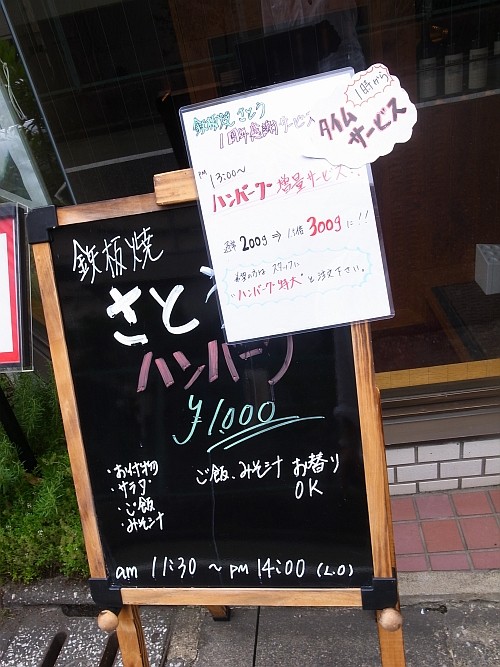 鉄板焼 さとう
1周年感謝サービス
1時から
タイム
サービス
PM 13:00〜
ハンバーグ 増量サービス!!
通常 200g ⇒ 1.5倍 300g に!!
希望の方は スタッフに
"ハンバーグ特大" と注文下さい。
鉄板焼
さと
ハンバーグ
¥1000
・お付物
・サラダ
・ご飯
・みそ汁
ご飯、みそ汁 お替り
OK
am 11:30 〜 pm 14:00 (L.O)